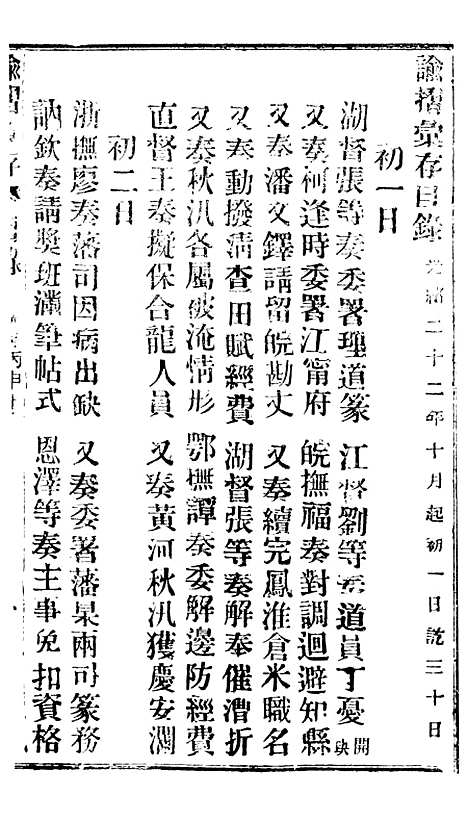 諭摺彙存目錄 光緒二十二年十月起初一日訖三十日
初一日
湖督張等奏委署理道篆 江督劉等奏道員丁憂開缺
又奏柯逢時委署江甯府 皖撫福奏對調迴避知縣
又奏潘文鐸請留皖勘丈 又奏續完鳳淮倉米職名
又奏動撥清查田賦經費 湖督張等奏解奉催漕折
又奏秋汛各屬被淹情形 鄂撫譚奏委解邊防經費
直督王奏擬保合龍人員 又奏黃河秋汛獲慶安瀾
初二日
浙撫廖奏藩司因病出缺 又奏委署藩臬兩司篆務
訥欽奏請獎班滿筆帖式 恩澤等奏主事免扣資格
諭摺彙存 目錄 丙申